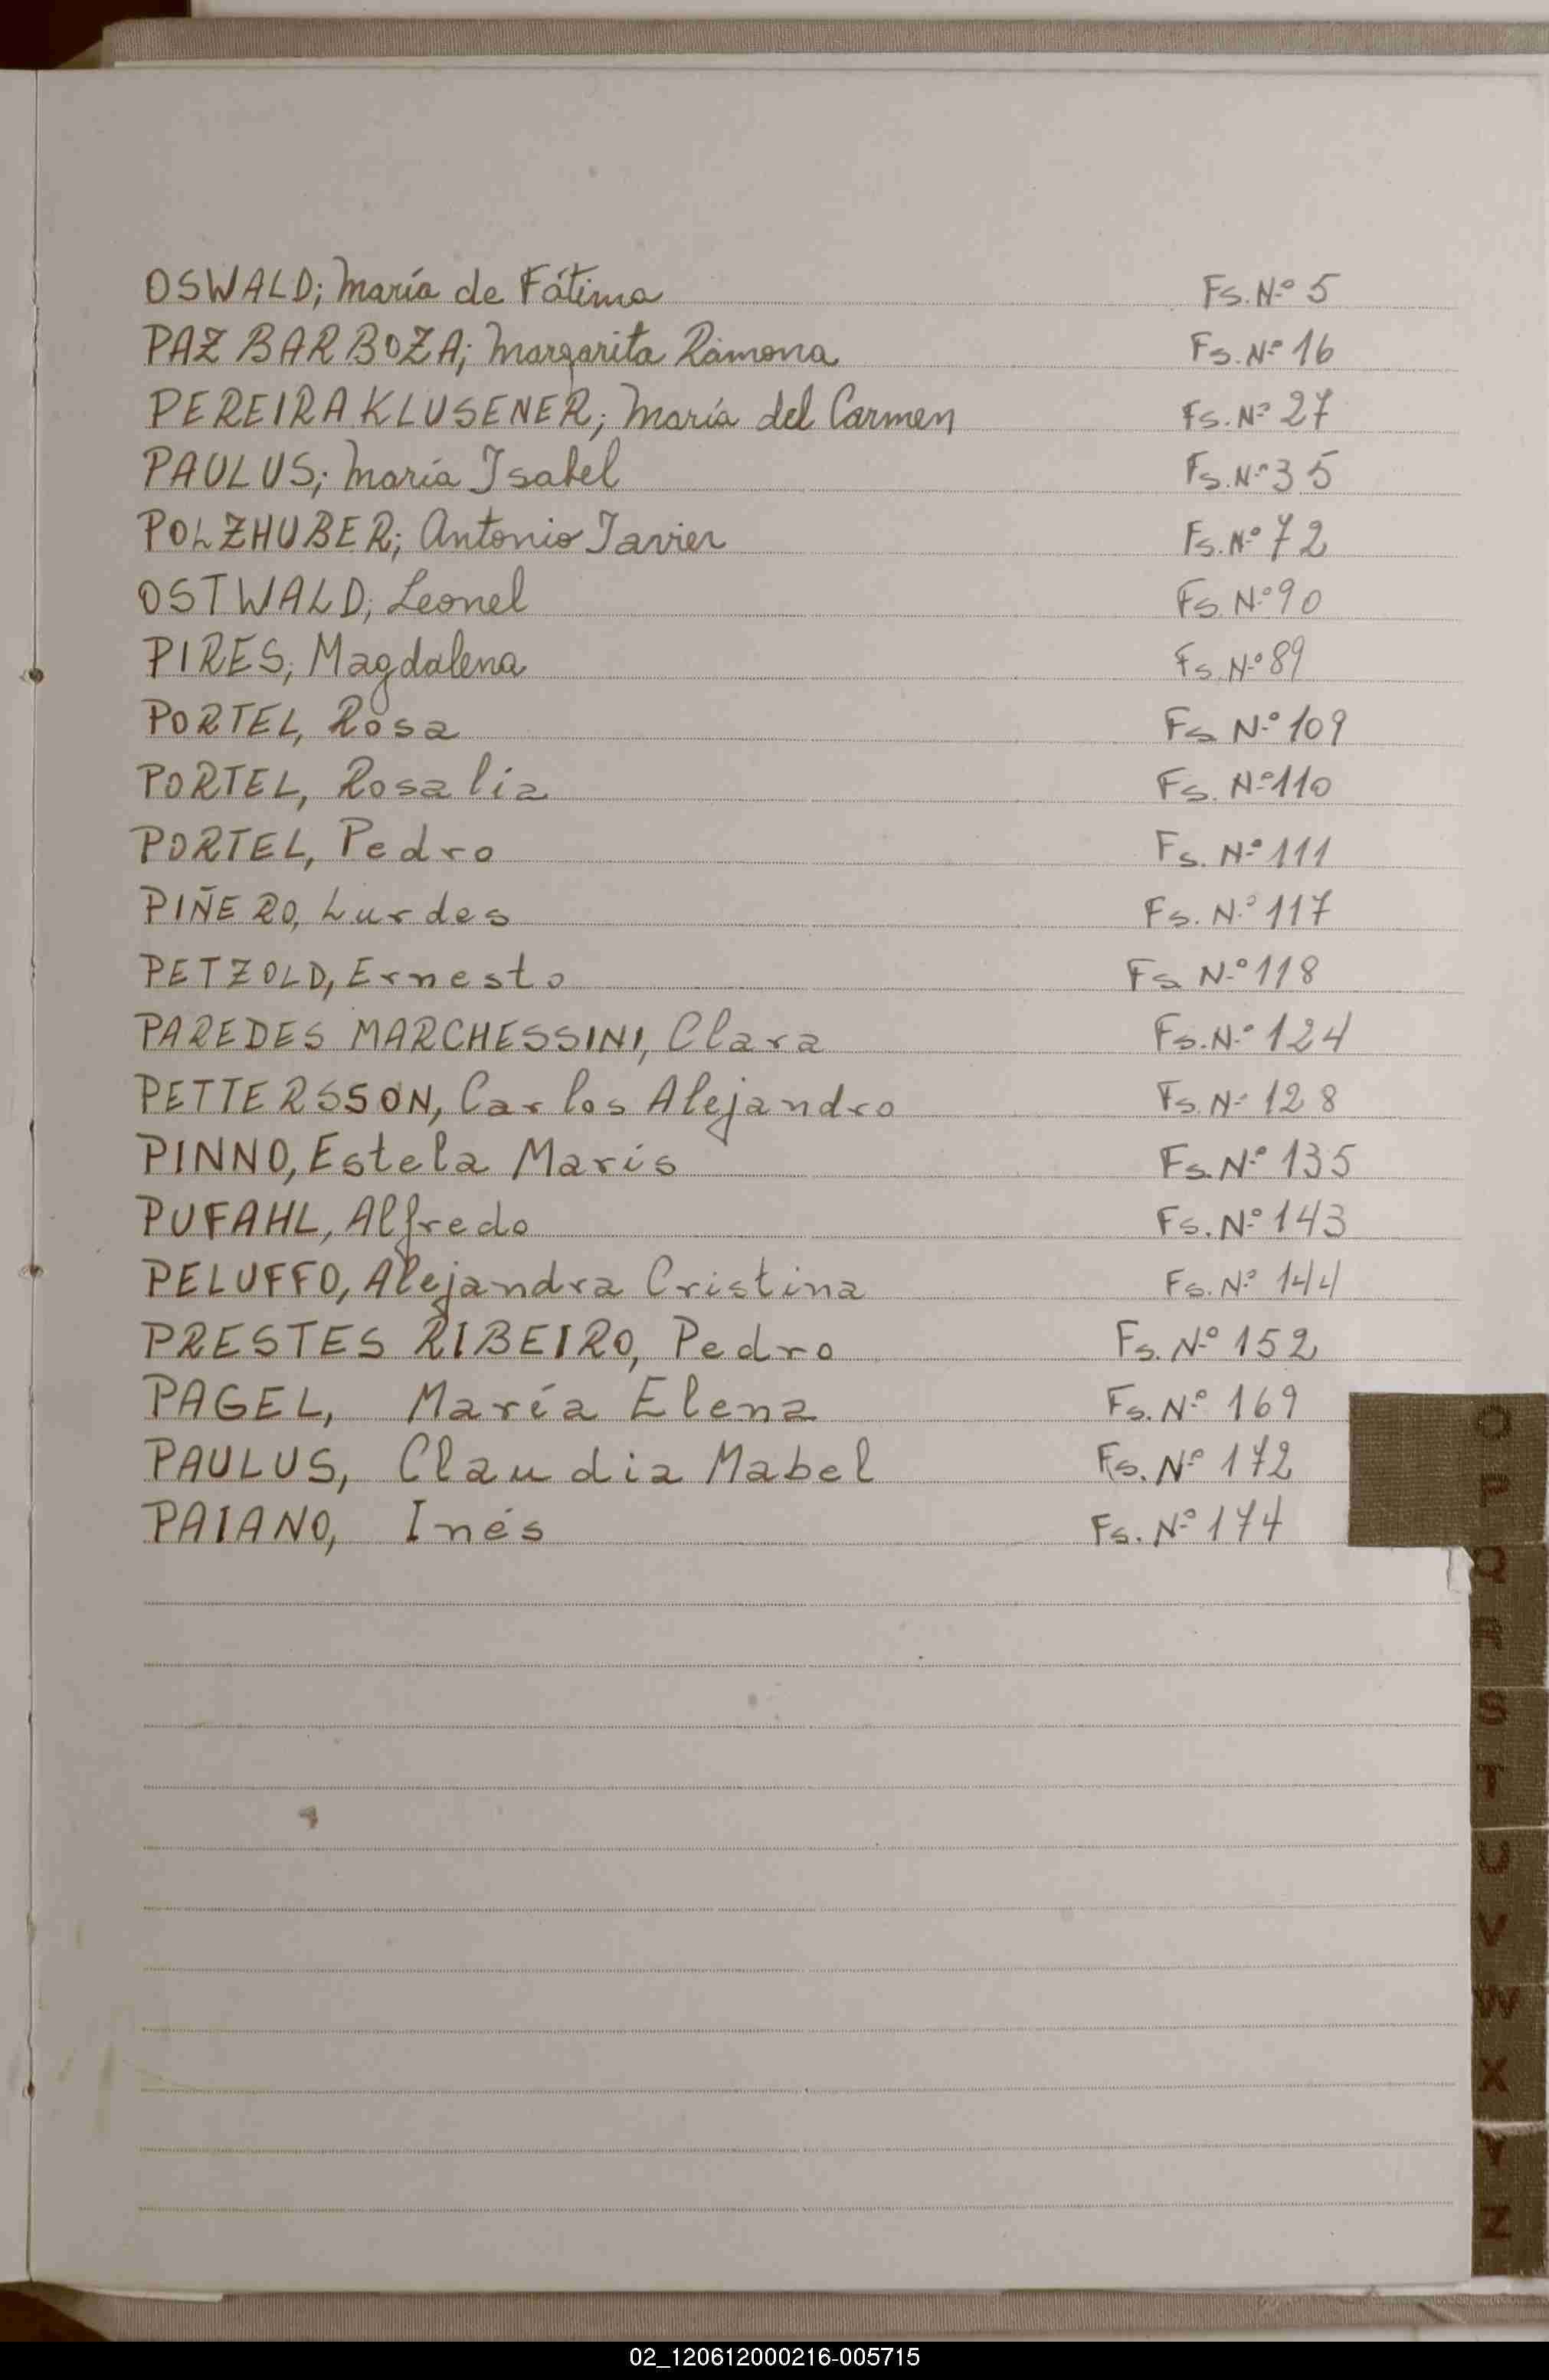 OSWALD; María de Fátima Fs. Nº 5
PAZ BARBOZA; Margarita Ramona Fs. Nº 16
PEREIRA KLUSENER; María del Carmen Fs. Nº 27
PAULUS; María Isabel Fs. Nº 35
POLZHUBER; Antonio Javier Fs. Nº 72
OSTWALD; Leonel Fs. Nº 90
PIRES; Magdalena Fs. Nº 89
PORTEL, Rosa Fs Nº 109
PORTEL, Rosalia Fs. Nº 110
PORTEL, Pedro Fs. Nº 111
PIÑERO, Lurdes Fs. Nº 117
PETZOLD, Ernesto Fs Nº 118
PAREDES MARCHESSINI, Clara Fs. Nº 124
PETTERSSON, Carlos Alejandro Fs. Nº 128
PINNO, Estela Maris Fs. Nº 135
PUFAHL, Alfredo Fs. Nº 143
PELUFFO, Alejandra Cristina Fs. Nº 144
PRESTES RIBEIRO, Pedro Fs. Nº 152
PAGEL, María Elena Fs. Nº 169
PAULUS, Claudia Mabel Fs. Nº 172
PAIANO, Inés Fs. Nº 174
O
P
Q
R
S
T
U
V
W
X
Y
Z
02_120612000216-005715